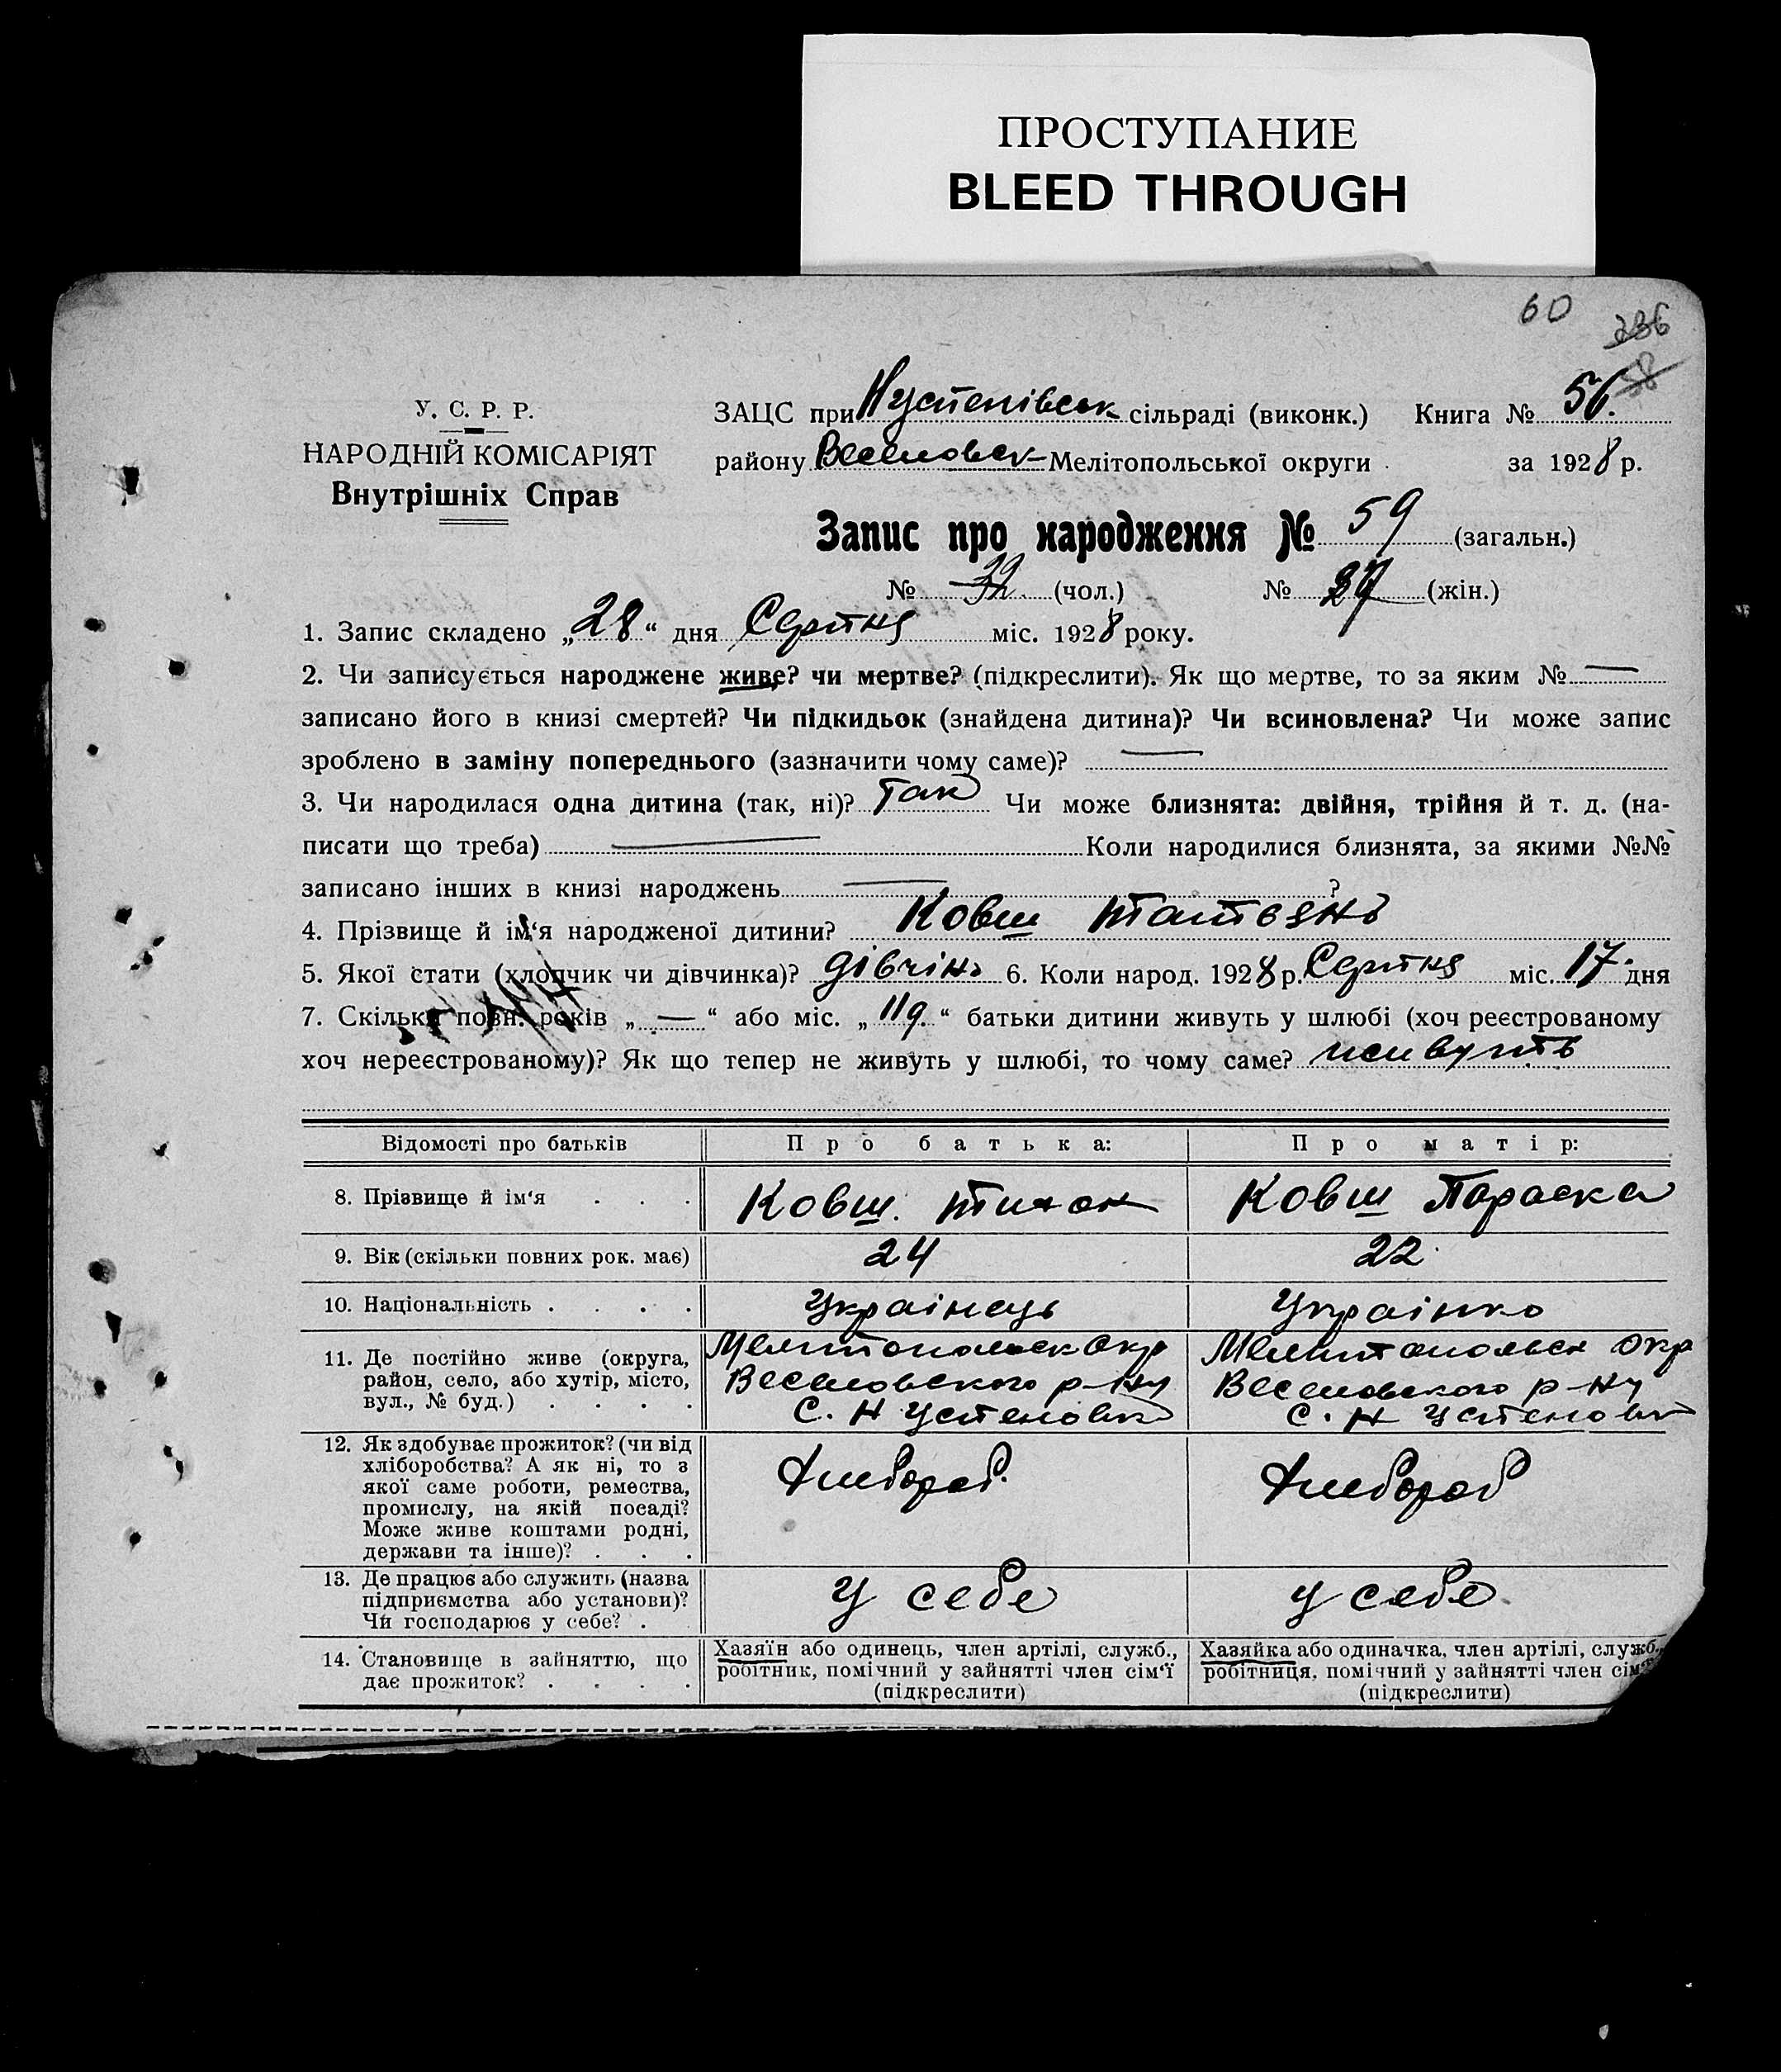 ПРОСТУПАНИЕ
BLEED THROUGH
60
286
58
У. С. Р. Р.
НАРОДНІЙ КОМІСАРІЯТ
Внутрішніх Справ
ЗАЦС при Нустепівськ сільраді (виконк.) Книга № 56.
району Веселовск Мелітопольської округи за 1928 р.
Запис про народження № 59 (загальн.)
№ (чол.) № 27 (жін.)
1. Запис складено „28“ дня Серпня міс. 1928 року.
2. Чи записується народжене живе? чи мертве? (підкреслити). Як що мертве, то за яким № —
записано його в книзі смертей? Чи підкидьок (знайдена дитина)? Чи всиновлена? Чи може запис
зроблено в заміну попереднього (зазначити чому саме)? —
3. Чи народилася одна дитина (так, ні)? Так Чи може близнята: двійня, трійня й т. д. (на-
писати що треба) — Коли народилися близнята, за якими №№
записано інших в книзі народжень — ?
4. Прізвище й ім‘я народженої дитини? Ковш
5. Якої стати (хлопчик чи дівчинка)? дівчінь 6. Коли народ. 1928 р. Серпня міс. 17 дня
7. Скільки повн. років „ — “ або міс. „ 11 “ батьки дитини живуть у шлюбі (хоч реєстрованому
хоч нереєстрованому)? Як що тепер не живуть у шлюбі, то чому саме? живуть
Відомості про батьків Про батька: Про матір:
8. Прізвище й ім‘я . . . Ковш. Тихон Ковш Параска
9. Вік (скільки повних рок. має) 24 22
10. Національність . . . . Українець Українко
11. Де постійно живе (округа, Мелитопольск Окр Мелитопольск Окр
район, село, або хутір, місто, Веселовского р-ну Веселовского р-ну
вул., № буд.) . . . . С. Н Устеновк С. Н Устеновк
12. Як здобуває прожиток? (чи від
хліборобства? А як ні, то з Хлебороб. Хлебороб
якої саме роботи, ремества,
промислу, на якій посаді?
Може живе коштами родні,
держави та інше)? . . .
13. Де працює або служить (назва
підприємства або установи)? у себе у себе
Чи господарює у себе? .
14. Становище в зайняттю, що
дає прожиток? . . . .
Хазяїн або одинець, член артілі, служб.,
робітник, помічний у зайнятті член сім‘ї
(підкреслити)
Хазяйка або одиначка, член артілі, служб.,
робітниця, помічний у зайнятті член сім‘ї
(підкреслити)